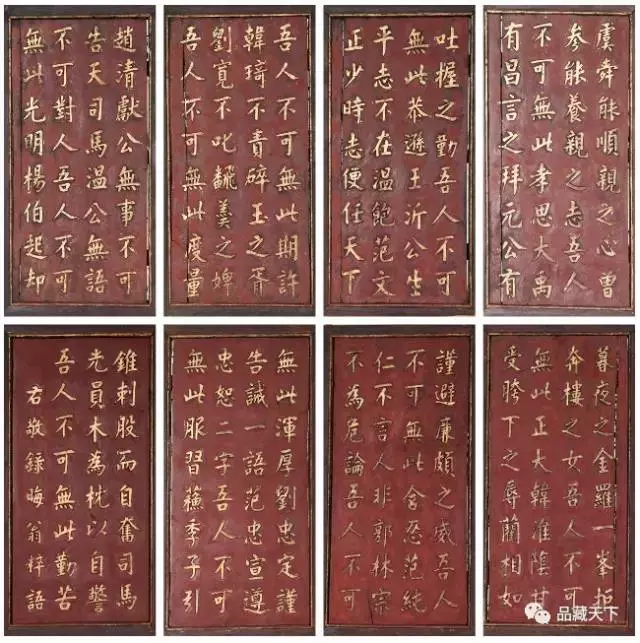 虞舜能順親之心曾
參能養親之志吾人
不可無此孝思大禹
有昌言之拜元公有
吐握之勤吾人不可
無此恭遜王沂公生
平志不在温飽范文
正少時志便任天下
吾人不可無此期許
韓琦不責碎玉之胥
劉寬不叱翻羹之婢
吾人不可無此度量
趙清獻公無事不可
告天司馬温公無語
不可對人吾人不可
無此光明楊伯起却
暮夜之金羅一峯拒
奔樓之女吾人不可
無此正大韓淮陰甘
受胯下之辱藺相如
謹避廉頗之威吾人
不可無此含忍范純
仁不言人非郭林宗
不為危論吾人不可
無此渾厚劉忠定謹
告誡一語范忠宣遵
忠恕二字吾人不可
無此服習蘓季子引
錐刺股而自奮司馬
光員木為枕以自警
吾人不可無此勤苦
右敬録晦翁梓語
品藏天下